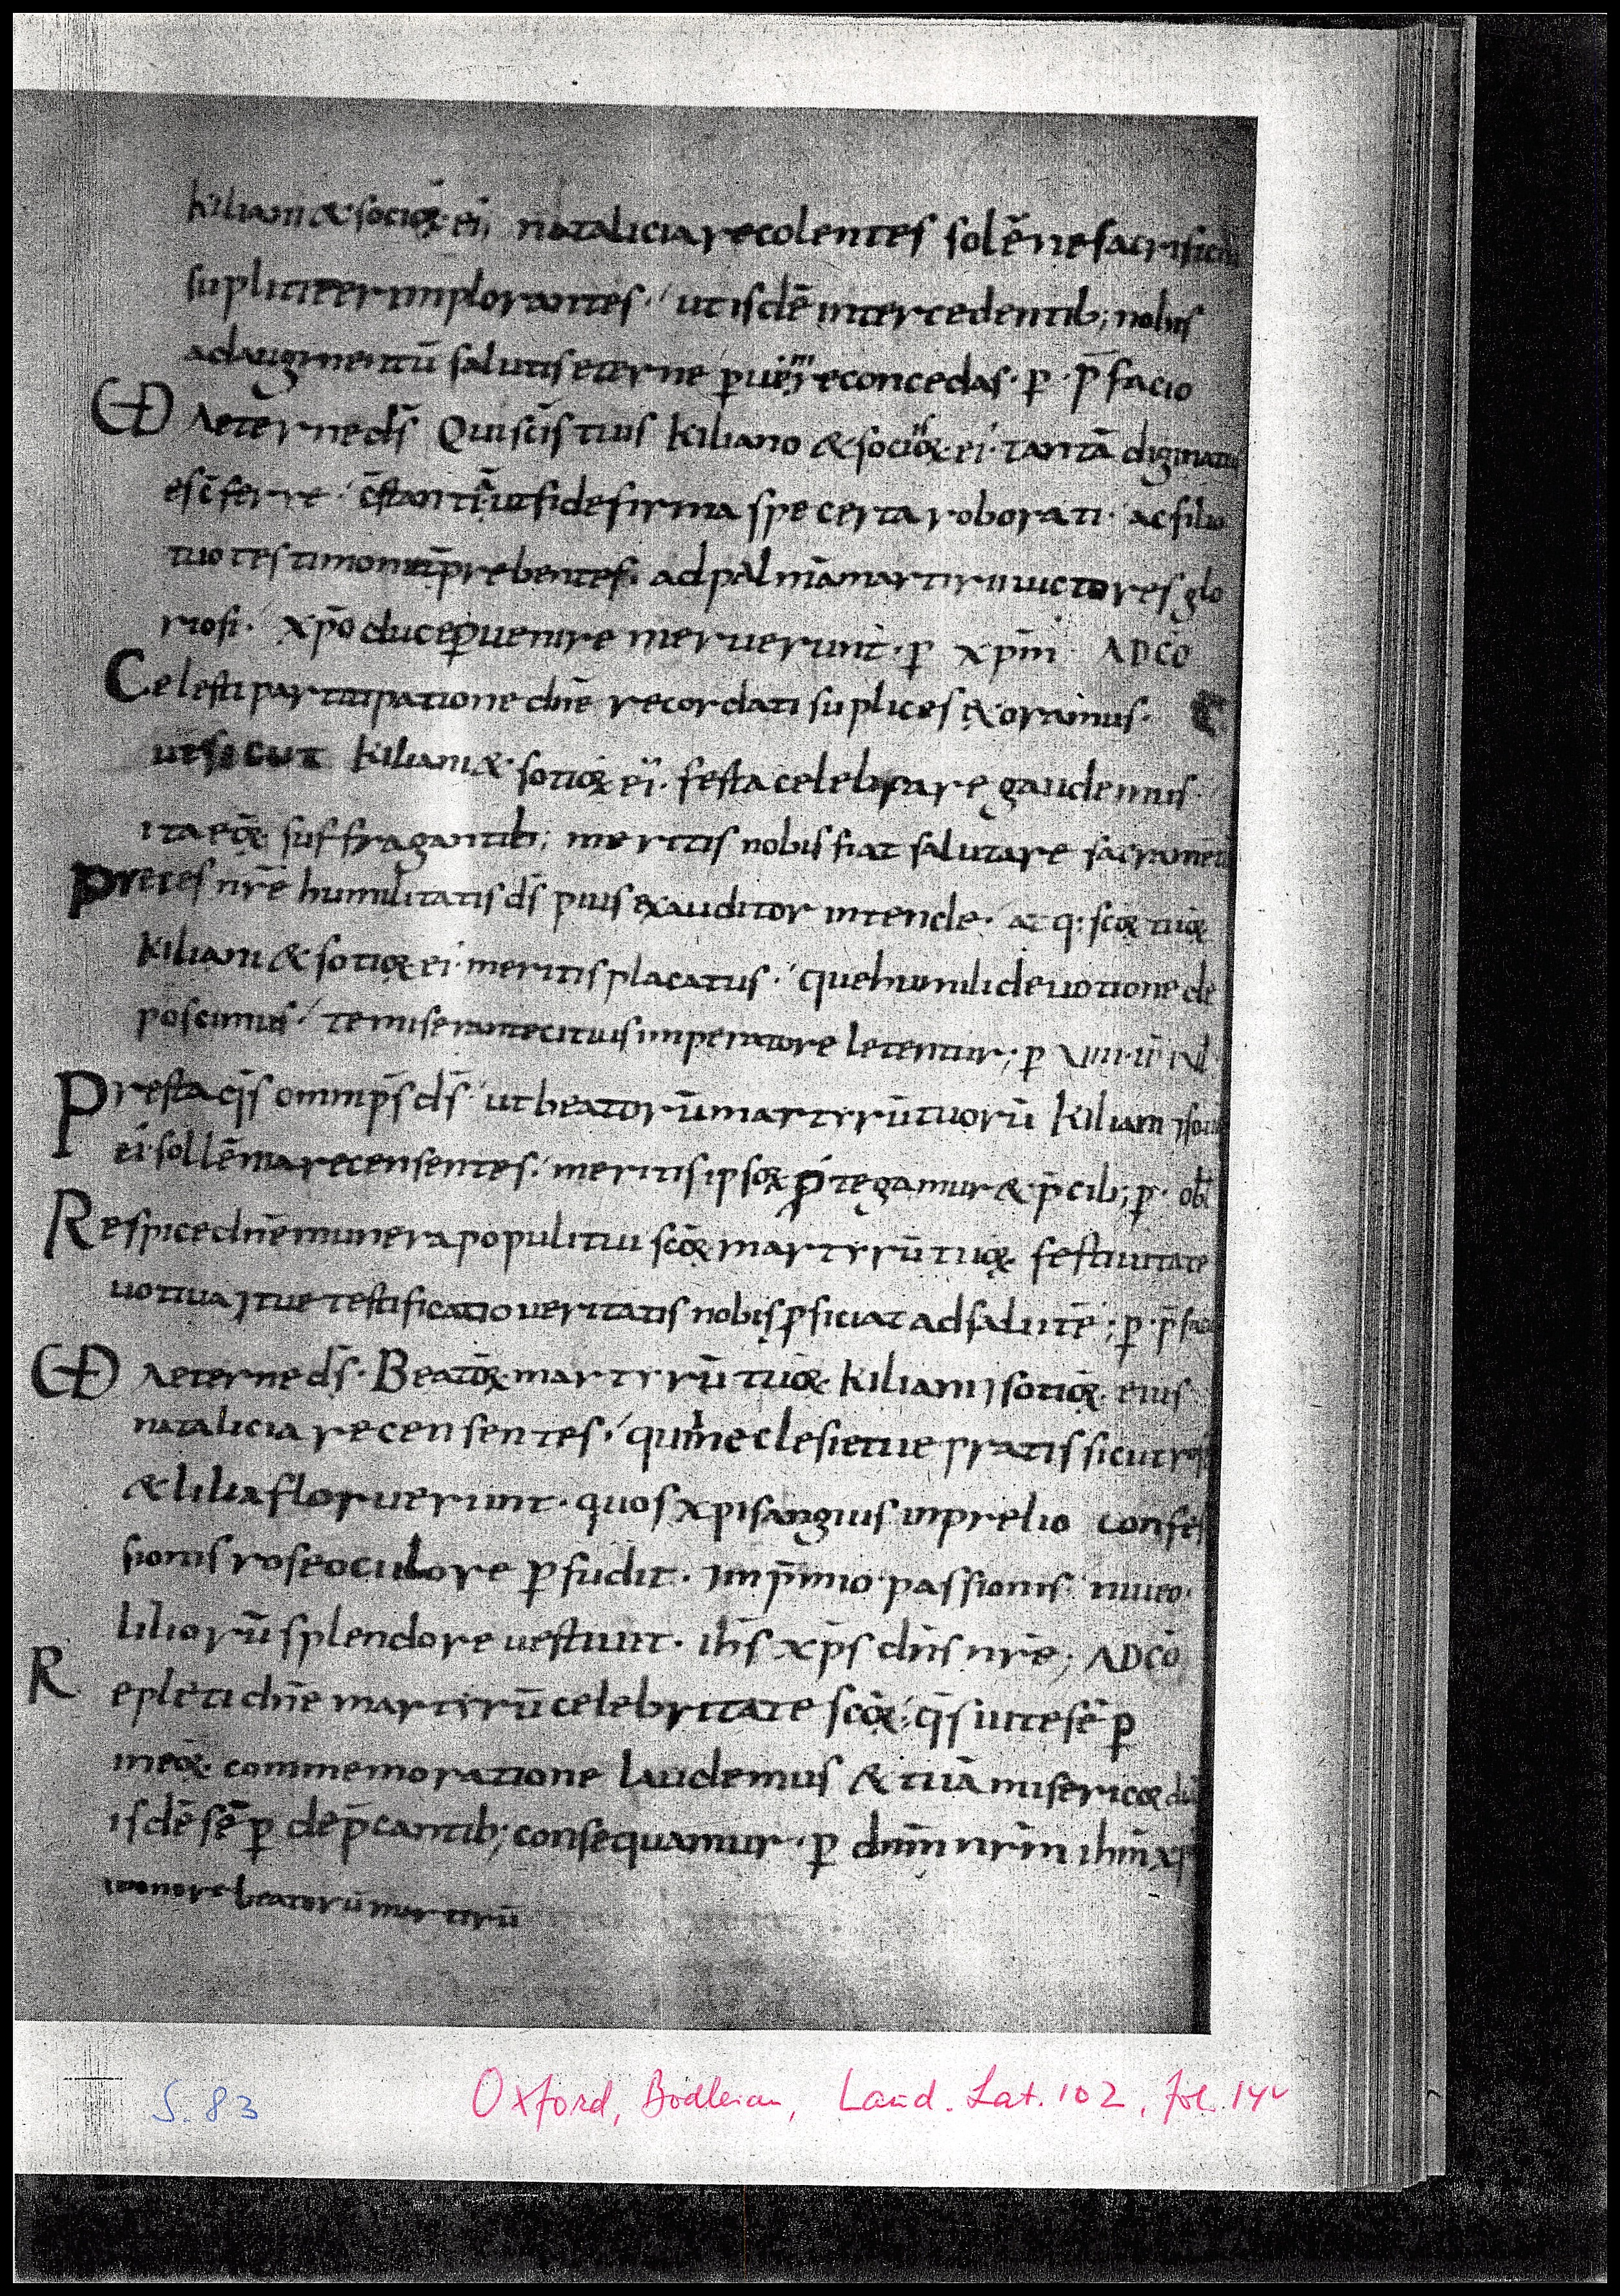 kiliani & socioꝝ ei; natalicia recolentes solēne sacrificiū
supliciter implorantes. ut isdē intercedentib; nobis
ad augmentū salutis eterne ꝑuenire concedas. ꝑ. p̄facio
VD Aeterne ds̄ Qui sc̄is tuis kiliano & socioꝝ ei. tantā dignatus
es c̄ferre. c̄stantiā ut fide firma spe certa roborati. ac filio
tuo testimoniū prebentes. ad palmā martirii uictores glo
riosi. xp̄o duce ꝑuenire meruerunt. ꝑ xp̄m ADCŌ
Celesti participatione dn̄e recordati suplices exoramus.
ut sicut kiliani & sotioꝝ ei. festa celebrare gaudemus.
ita eoꝝ suffragantib; meritis nobis fiat salutare sacramētū
Preces nr̄e humilitatis ds̄ pius exauditor intende. atq: sc̄oꝝ tuoꝝ
kiliani & sotioꝝ ei. meritis placatus. que humili deuotione de
poscimus. te miserante
letentur; ꝑ
Presta qs̄ omnip̄s ds̄ ut beatorū martyrū tuorū kiliani ⁊ sotioꝝ
ei. sollēnia recensentes. meritis ipsoꝝ ꝓtegamur & p̄cib; ꝑ. obl̄
Respice dn̄e munera populi tui sc̄oꝝ martyrū tuoꝝ festiuitate
uotiua ⁊ tue testificatio ueritatis nobis ꝓficiat ad salutē; ꝑ. p̄fac
VD Aeterne ds̄. Beatoꝝ martyrū tuoꝝ kiliani ⁊ sotioꝝ eius
natalicia recensentes. qui in eclesie tue pratis sicut rose
& lilia floruerunt. quos xp̄i sanguis in prelio confes
sionis roseo culore ꝑfudit. ⁊ in p̄mio passionis niueo.
liliorū splendore uestiuit. ih̄s xp̄s dn̄s nr̄e; ADCŌ
Repleti dn̄e martyrū celebritate sc̄oꝝ. qs̄ ut te sēꝑ
in eoꝝ commemoratione laudemus & tuā misericoꝝdiā
isdē sēꝑ dep̄cantib; consequamur. ꝑ dnm̄ nrm̄ ihm̄ xpm̄
in onore beatorū martirū
S. 83 Oxford, Bodleian, Laud. Lat. 102, fol. 14v